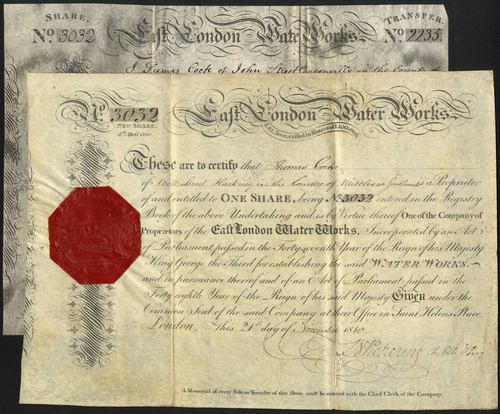 SHARE, TRANSFER
No. 3032 East London Water Works No. 2235
I Thomas Cock of John Street in the County of
No. 3032 East London Water Works
NEW SHARE,
5th April 1810
These are to certify that Thomas Cock
of Well Street Hackney in the County of Middlesex Gentleman is a Proprietor
of and entitled to ONE SHARE, being No. 3032 entered in the Registry
Book of the above Undertaking and is by Virtue thereof One of the Company of
Proprietors of the EAST LONDON WATER WORKS, Incorporated by an Act
of Parliament passed in the Forty seventh Year of the Reign of his Majesty
King George the Third for establishing the said WATER WORKS
and in pursuance thereof and of an Act of Parliament passed in the
Forty eighth Year of the Reign of his said Majesty Given under the
Common Seal of the said Company at their Office in Saint Helens Place,
London, This 21st day of November 1810
A Memorial of every Sale or Transfer of this Share must be entered with the Chief Clerk of the Company